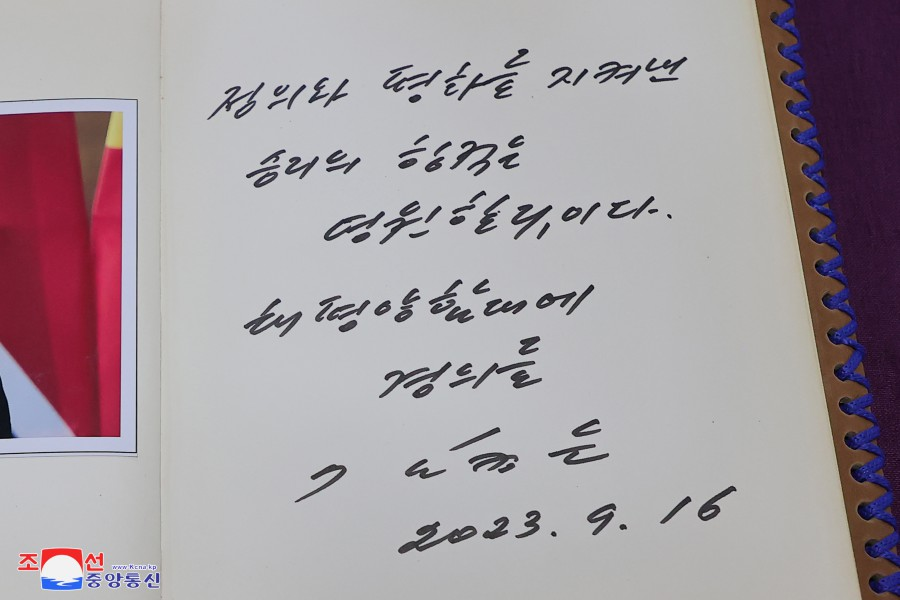 정의와 평화를 지켜낸
승리의 항적은
영원할 것이다.
태평양함대에
경의를
김정은
2023. 9. 16
조선
www.kcna.kp
중앙통신